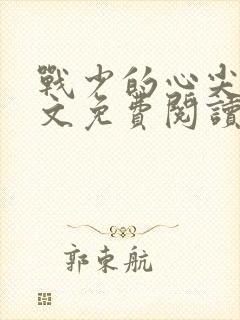 戰少的心尖
文免費閱讀
郭東航